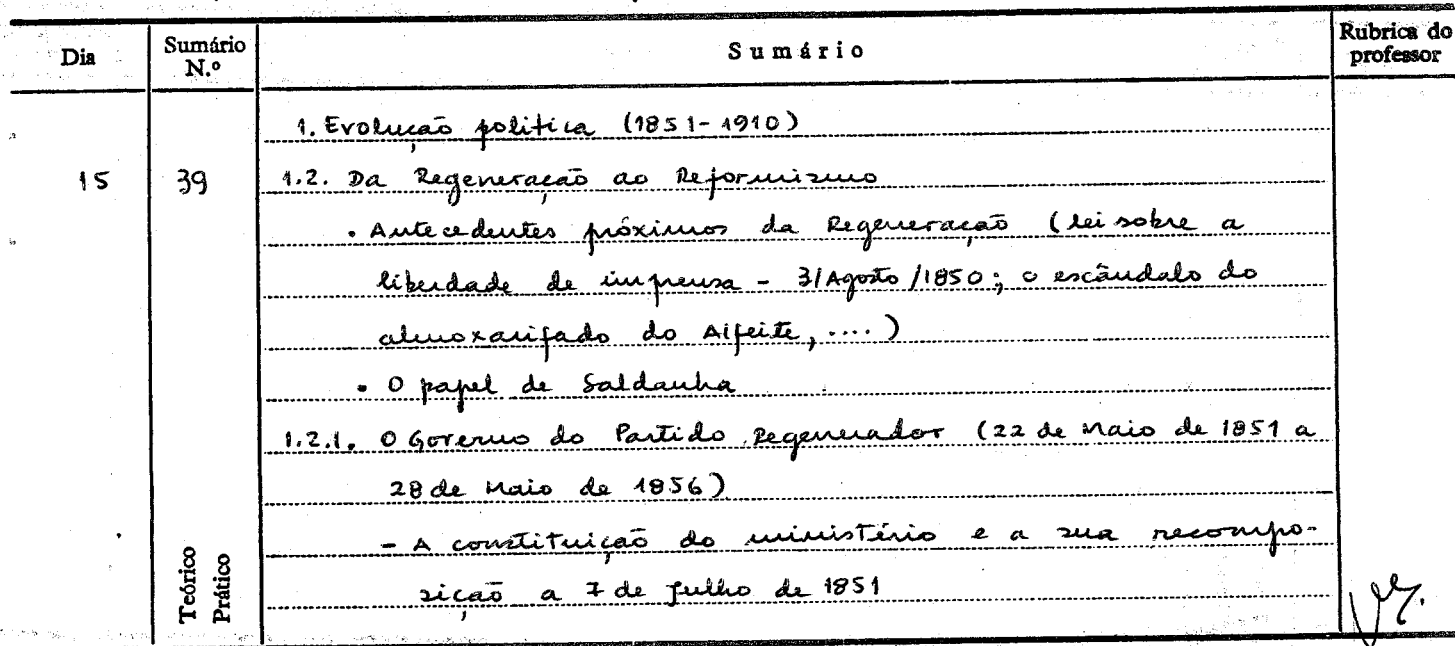 Dia
Sumário N.º
Sumário
Rubrica do professor
1. Evolução politica (1851-1910)
15
39
1.2. Da Regeneração ao Reformismo
• Antecedentes próximos da Regeneração (lei sobre a
liberdade de imprensa - 3/Agosto/1850; o escândalo do
almoxarifado do Alfeite, ....)
• O papel de Saldanha
1.2.1. O Governo do Partido Regenerador (22 de Maio de 1851 a
28 de Maio de 1856)
- A constituição do ministério e a sua recompo-
sição a 7 de Julho de 1851
Teórico
Prático